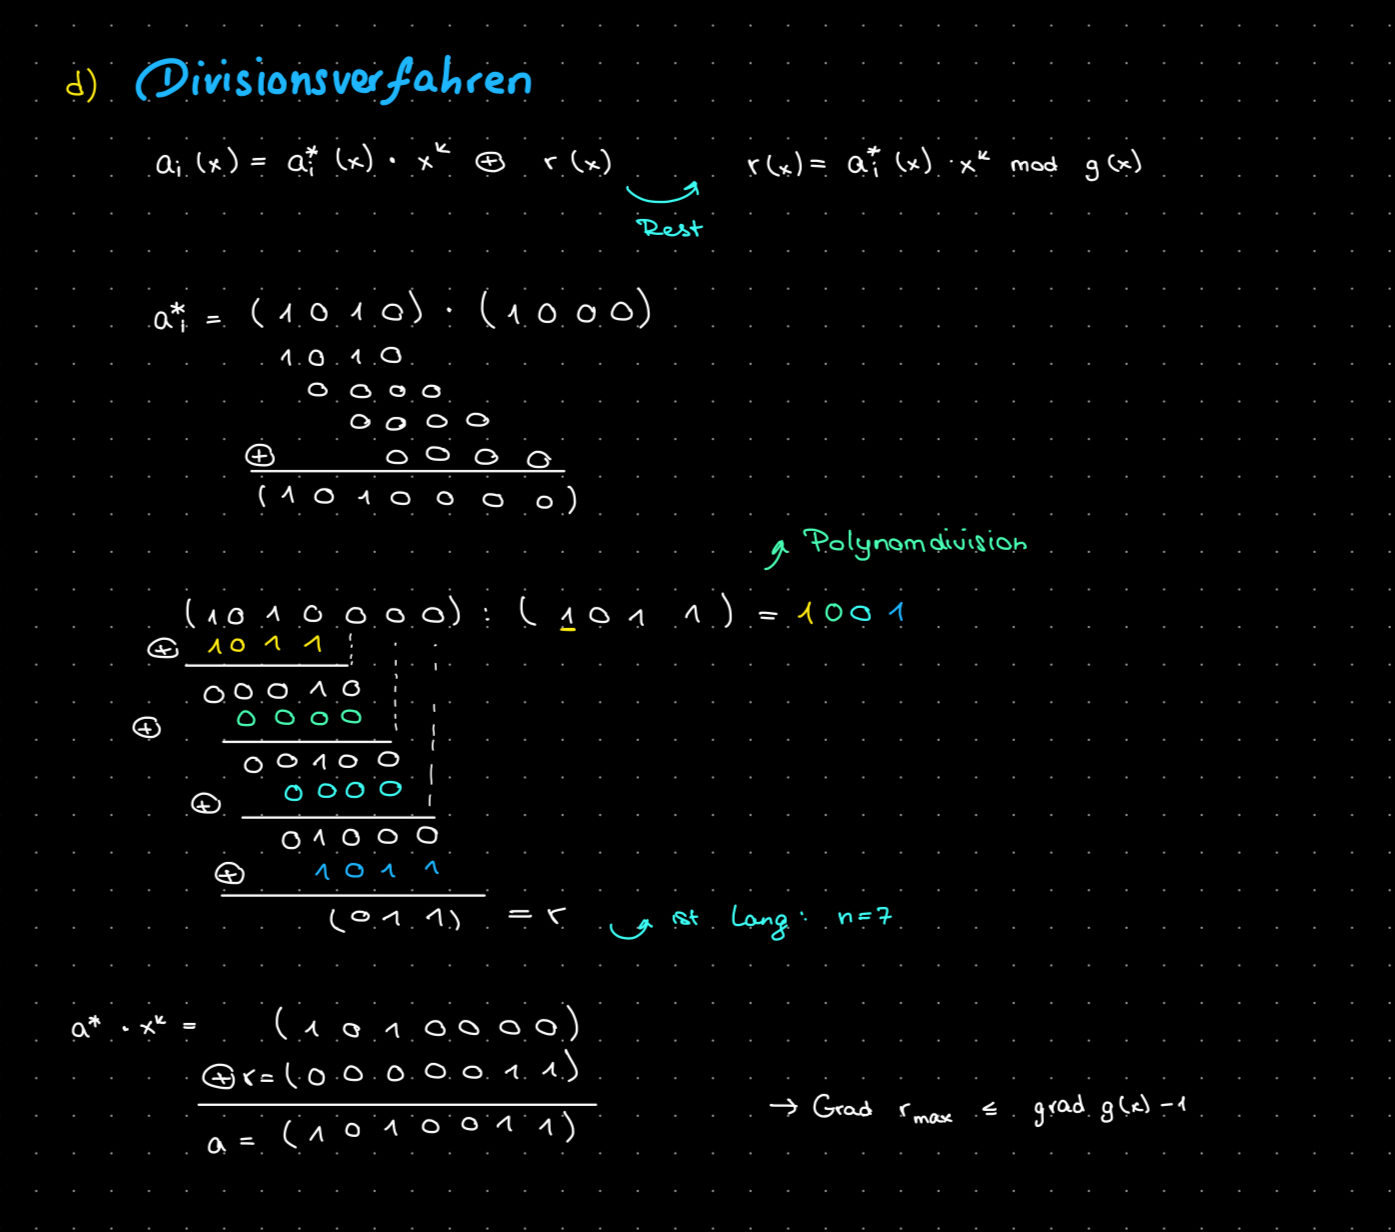 d) Divisionsverfahren
aᵢ(x) = aᵢ*(x) · xᵏ ⊕ r(x) r(x) = aᵢ*(x) · xᵏ mod g(x)
Rest
aᵢ* = (1 0 1 0) · (1 0 0 0)
1 0 1 0
0 0 0 0
0 0 0 0
⊕ 0 0 0 0
(1 0 1 0 0 0 0)
Polynomdivision
(1 0 1 0 0 0 0) : (1 0 1 1) = 1 0 0 1
⊕ 1 0 1 1
0 0 0 1 0
⊕ 0 0 0 0
0 0 1 0 0
⊕ 0 0 0 0
0 1 0 0 0
⊕ 1 0 1 1
(0 1 1) = r ist lang: n=7
a* · xᵏ = (1 0 1 0 0 0 0)
⊕ r = (0 0 0 0 0 1 1)
→ Grad r_max ≤ grad g(x) -1
a = (1 0 1 0 0 1 1)